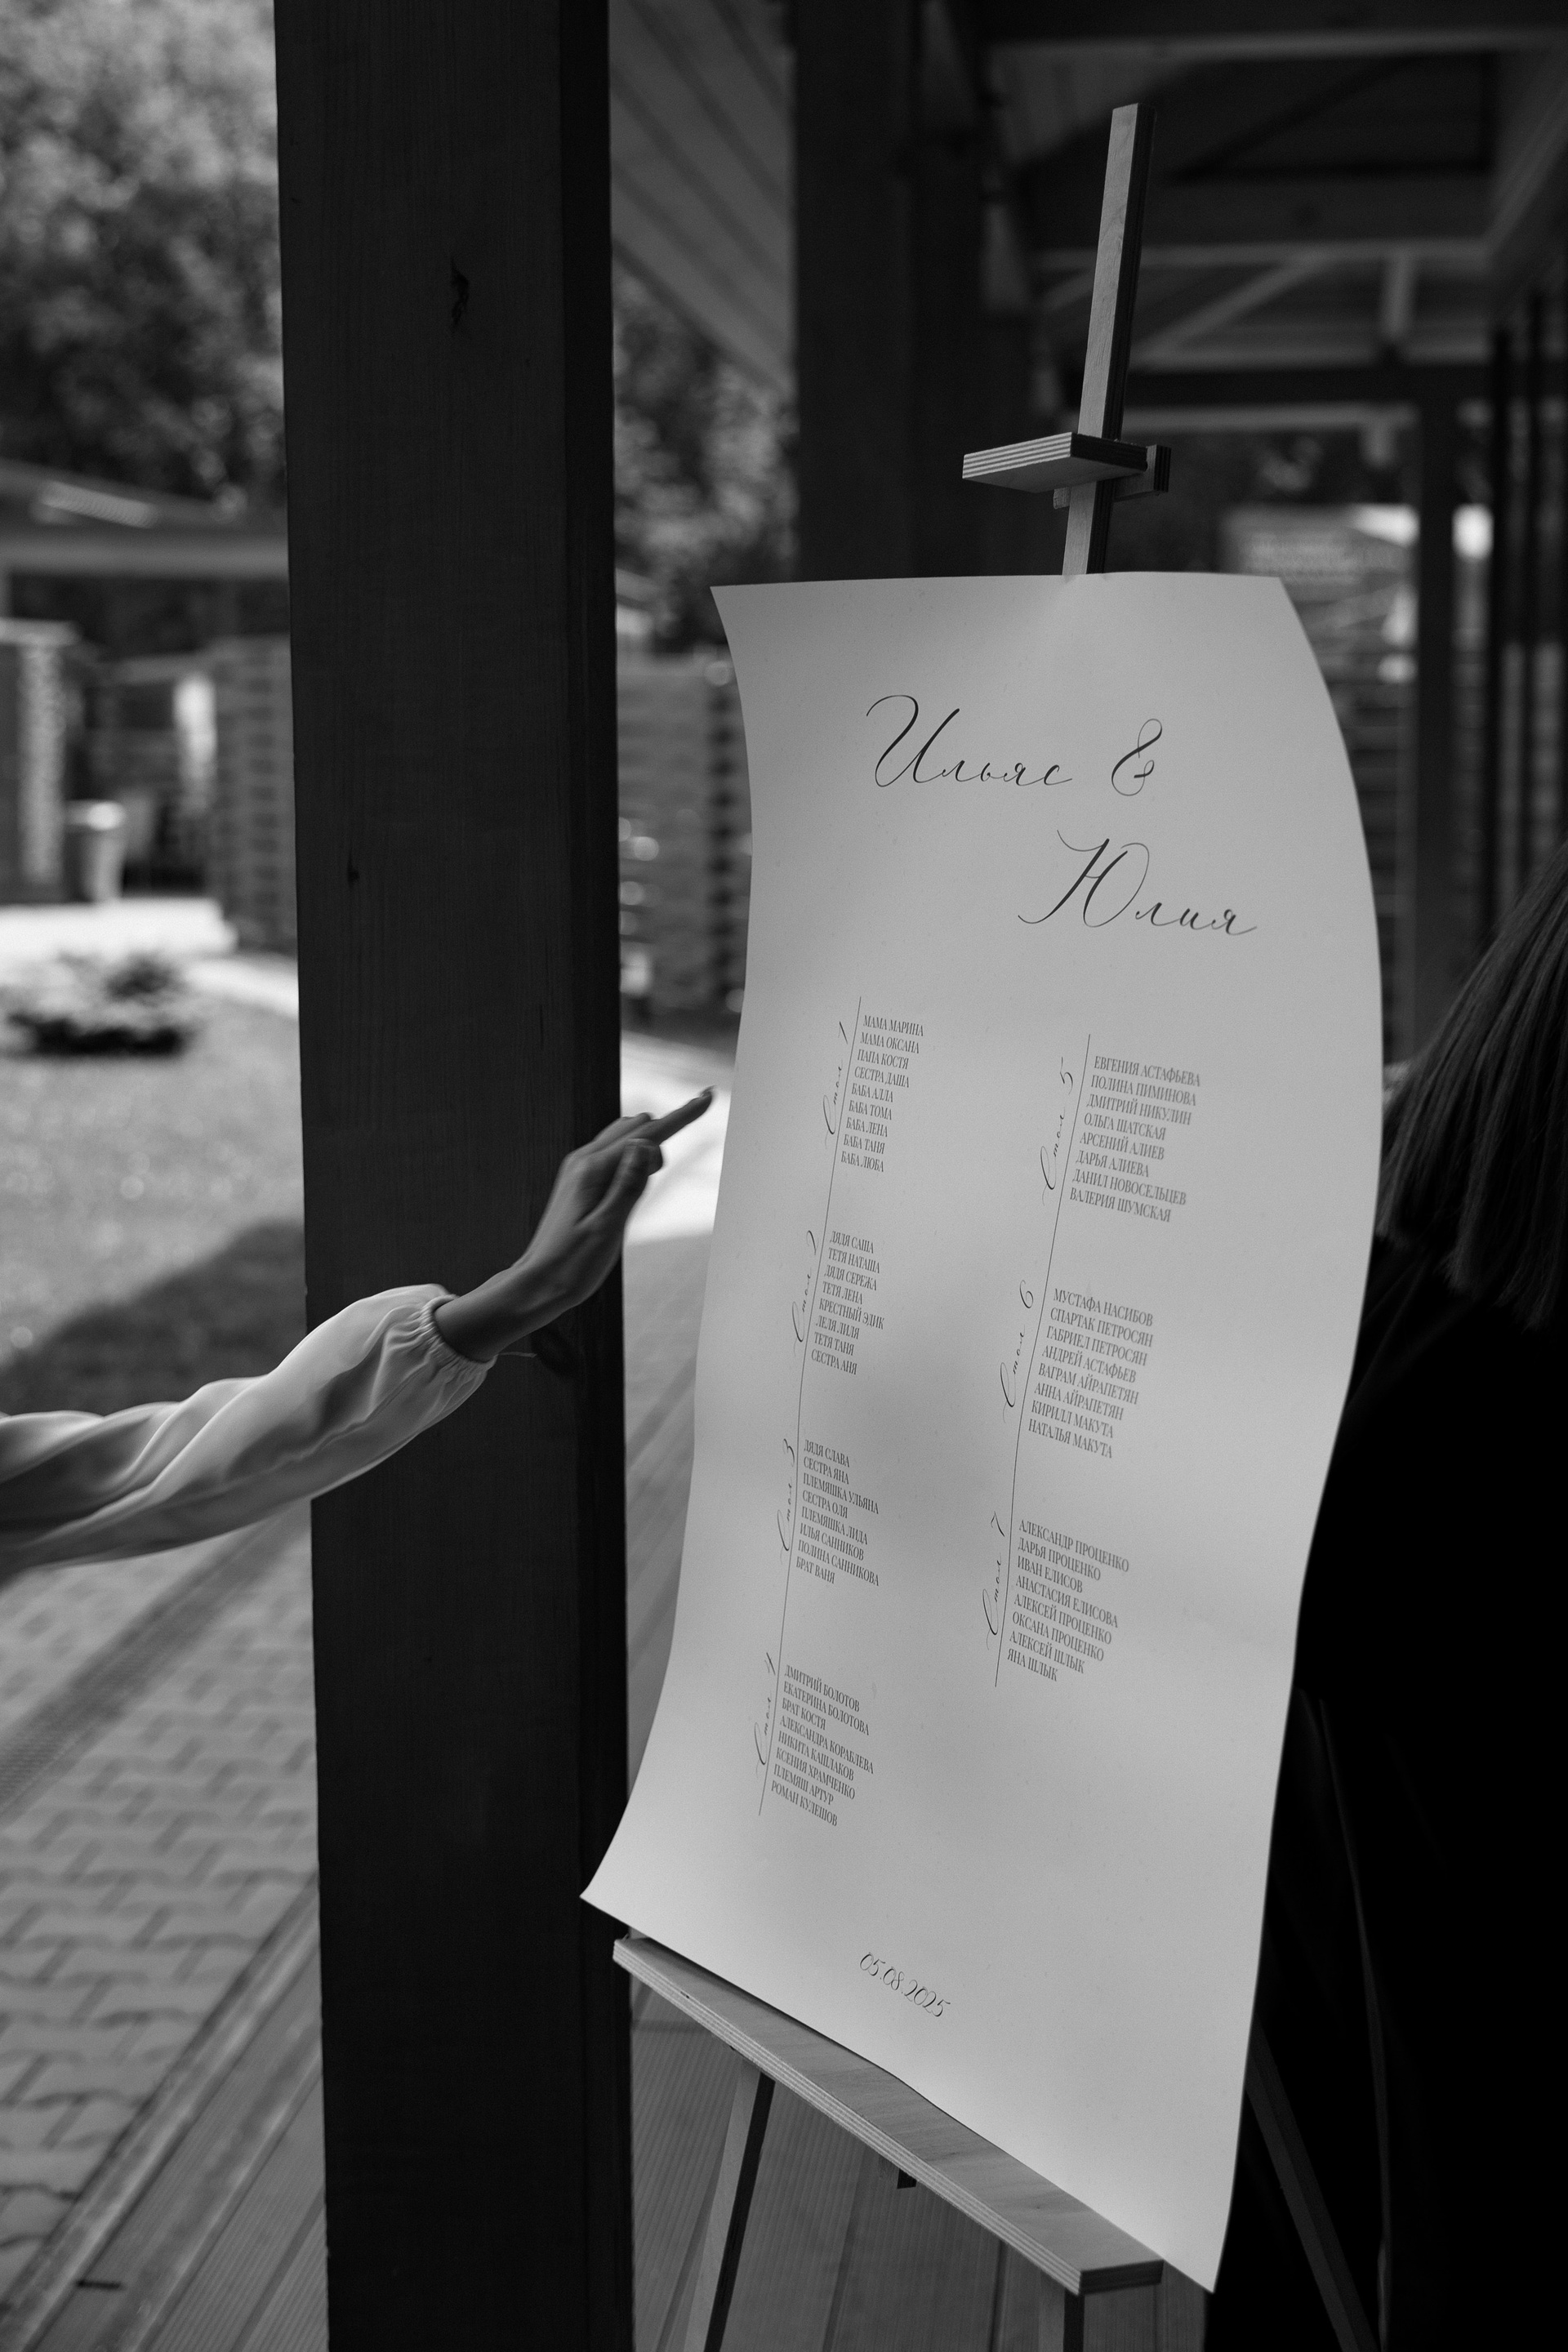 Ильяс &
Юлия
Стол 1
МАМА МАРИНА
МАМА ОКСАНА
ПАПА КОСТЯ
СЕСТРА ДАША
БАБА АЛЛА
БАБА ТОМА
БАБА ЛЕНА
БАБА ТАНЯ
БАБА ЛЮБА
Стол 2
ДЯДЯ САША
ТЕТЯ НАТАША
ДЯДЯ СЕРЕЖА
ТЕТЯ ЛЕНА
КРЕСТНЫЙ ЭДИК
ЛЕЛЯ ЛИЛЯ
ТЕТЯ ТАНЯ
СЕСТРА АНЯ
Стол 3
ДЯДЯ СЛАВА
СЕСТРА ЯНА
ПЛЕМЯШКА УЛЬЯНА
СЕСТРА ОЛЯ
ПЛЕМЯШКА ЛИДА
ИЛЬЯ САННИКОВ
ПОЛИНА САННИКОВА
БРАТ ВАНЯ
Стол 4
ДМИТРИЙ БОЛОТОВ
ЕКАТЕРИНА БОЛОТОВА
БРАТ КОСТЯ
АЛЕКСАНДРА КОРАБЛЕВА
НИКИТА КАШЛАКОВ
КСЕНИЯ ХРАМЧЕНКО
ПЛЕМЯШ АРТУР
РОМАН КУЛЕШОВ
Стол 5
ЕВГЕНИЯ АСТАФЬЕВА
ПОЛИНА ПИМИНОВА
ДМИТРИЙ НИКУЛИН
ОЛЬГА ШАТСКАЯ
АРСЕНИЙ АЛИЕВ
ДАРЬЯ АЛИЕВА
ДАНИЛ НОВОСЕЛЬЦЕВ
ВАЛЕРИЯ ШУМСКАЯ
Стол 6
МУСТАФА НАСИБОВ
СПАРТАК ПЕТРОСЯН
ГАБРИЕЛ ПЕТРОСЯН
АНДРЕЙ АСТАФЬЕВ
ВАГРАМ АЙРАПЕТЯН
АННА АЙРАПЕТЯН
КИРИЛЛ МАКУТА
НАТАЛЬЯ МАКУТА
Стол 7
АЛЕКСАНДР ПРОЦЕНКО
ДАРЬЯ ПРОЦЕНКО
ИВАН ЕЛИСОВ
АНАСТАСИЯ ЕЛИСОВА
АЛЕКСЕЙ ПРОЦЕНКО
ОКСАНА ПРОЦЕНКО
АЛЕКСЕЙ ШЛЫК
ЯНА ШЛЫК
05.08.2025